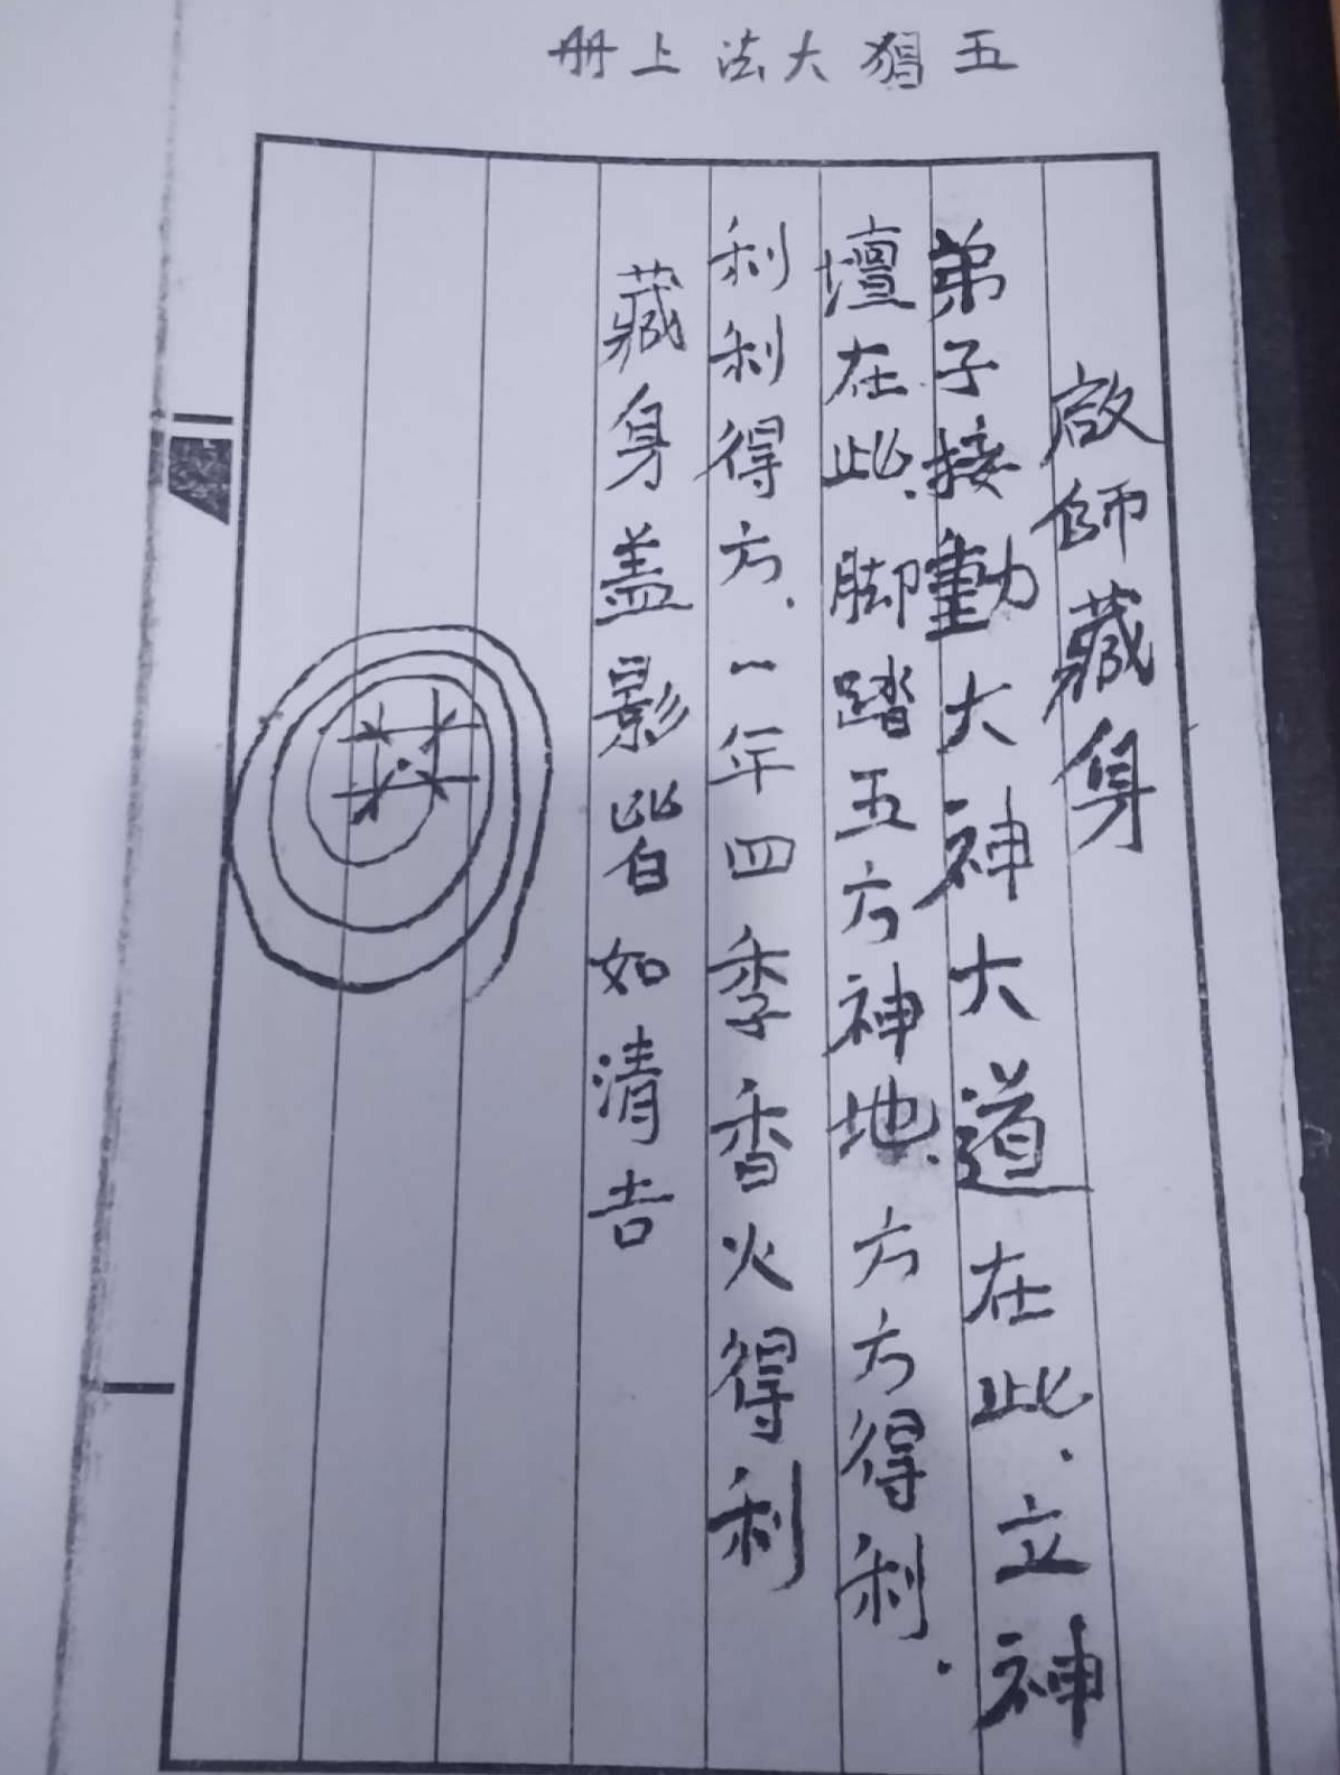 五猖大法上册
啟師藏身
弟子接動大神大道在此.立神
壇在此.脚踏五方神地.方方得利.
利利得方.一年四季香火得利
藏身盖影皆如清吉
井